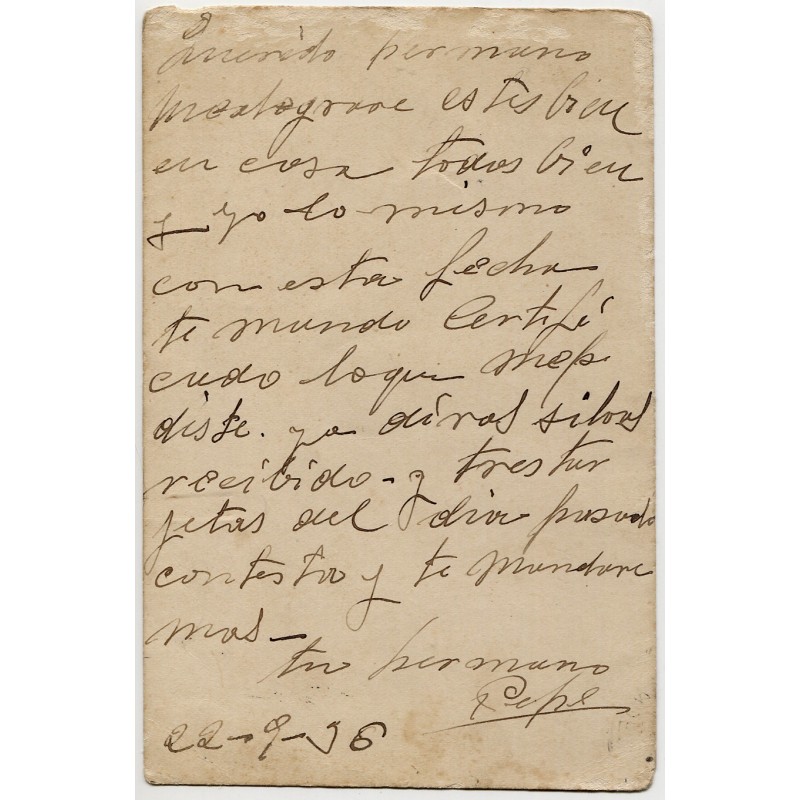 Querido hermano
mealegrare estes bien
en casa todos bien
y yo lo mismo
con esta fecha
te mando Certifi
cado loque mepi
diste. ya diras siloas
recibido - y trestar
jetas del dia pasado
contesta y te mandare
mas -
tu hermano
Pepe
22-9-36